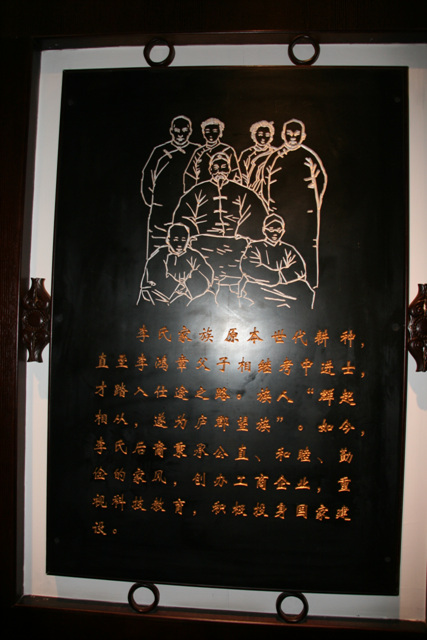 李氏家族原本世代耕种，
直至李鸿章父子相继考中进士，
才踏入仕途之路。族人“群起
相从，遂为庐郡望族”。如今，
李氏后裔秉承公直、和睦、勤
俭的家风，创办工商企业，重
视科技教育，积极投身国家建
设。